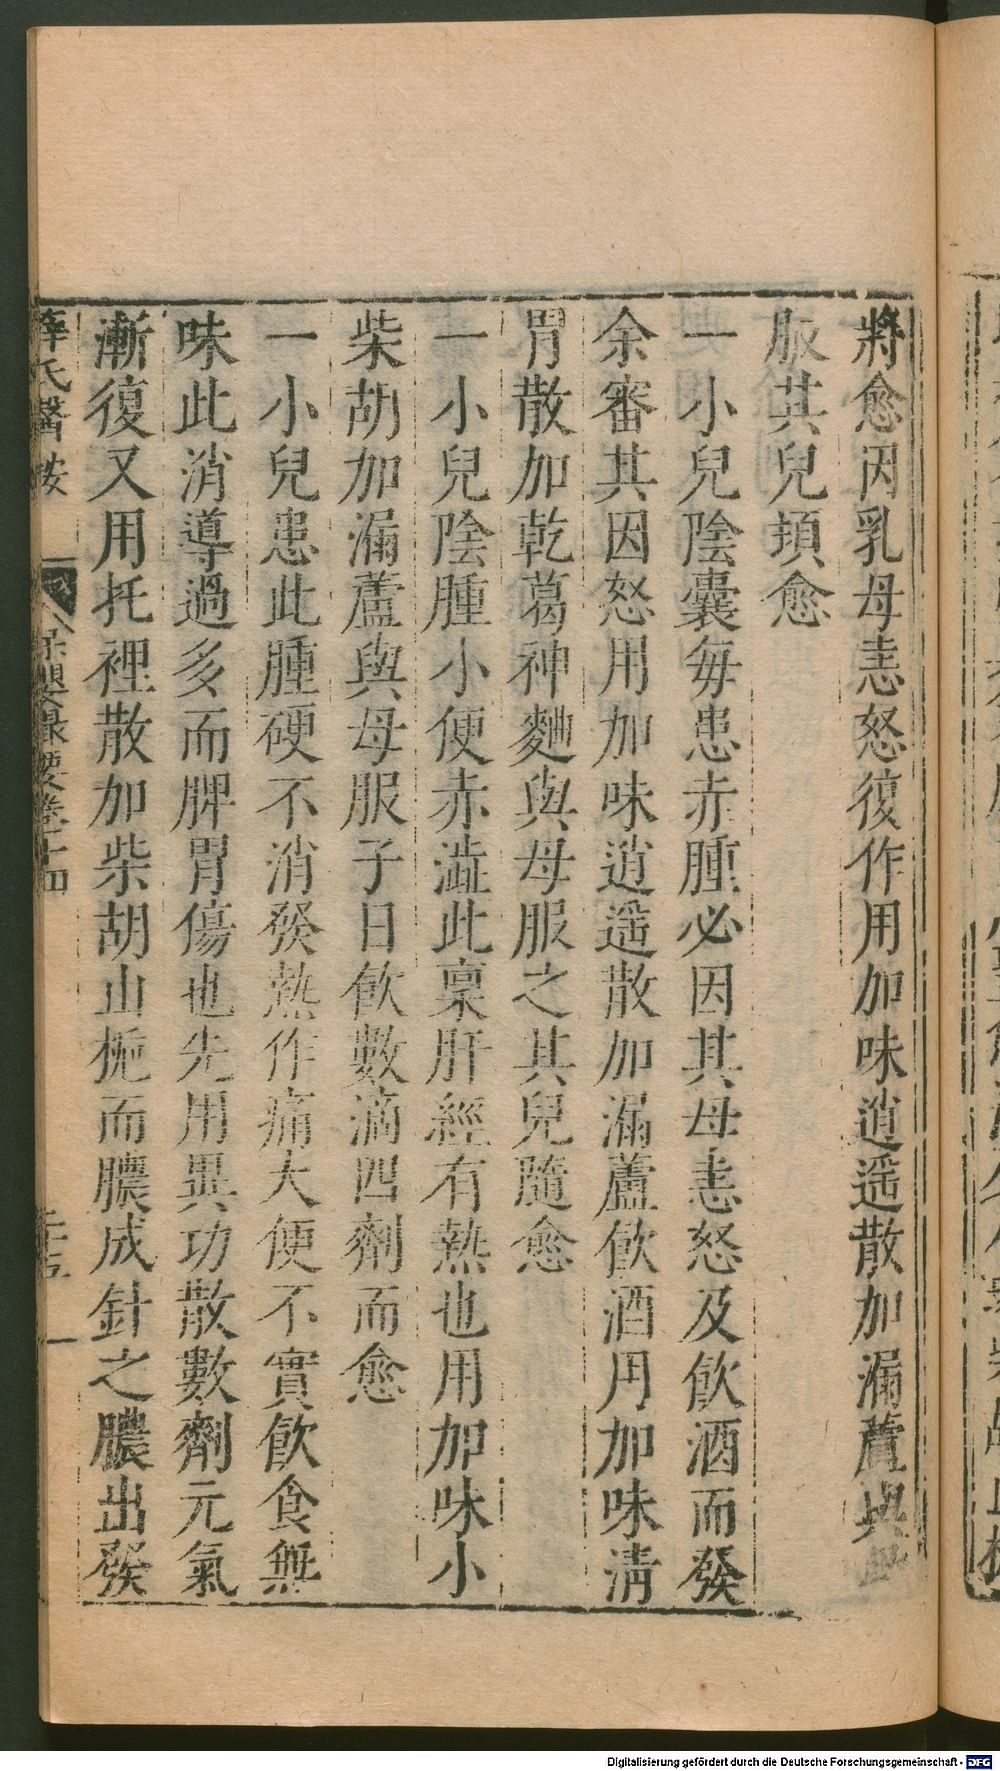 將愈因乳母恚怒復作用加味逍遥散加漏蘆與母
服其兒頓愈
一小兒陰囊每患赤腫必因其母恚怒及飲酒而發
余審其因怒用加味逍遥散加漏蘆飲酒用加味清
胃散加乾葛神麯與母服之其兒隨愈
一小兒陰腫小便赤澁此稟肝經有熱也用加味小
柴胡加漏蘆與母服子日飲數滴四劑而愈
一小兒患此腫硬不消發熱作痛大便不實飲食無
味此消導過多而脾胃傷也先用異功散數劑元氣
漸復又用托裡散加柴胡山梔而膿成針之膿出發
薛氏醫按
保嬰撮要卷十四
Digitalisierung gefördert durch die Deutsche Forschungsgemeinschaft - DFG